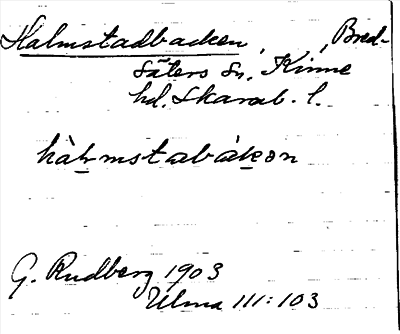 Halmstadbacken, , Bred-
säters sn, Kinne
hd. Skarab. l.
hàlmstabàkən
G. Rudberg 1903
Ulma 111:103